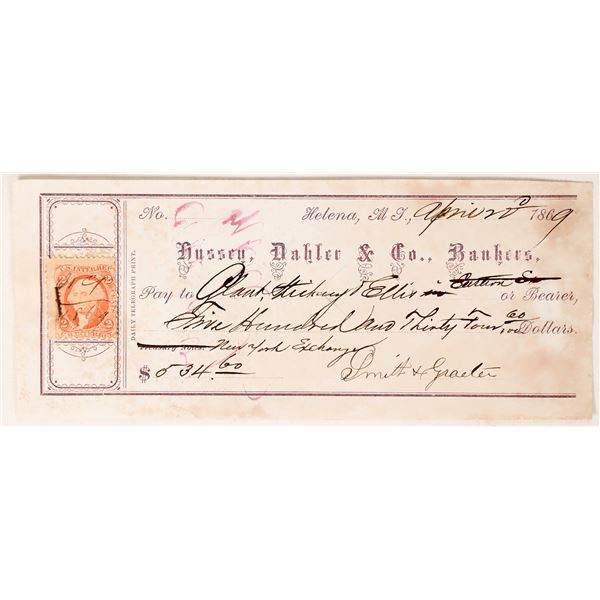 No. Helena, M. T., April 20 1869
Hussey, Dahler & Co., Bankers,
Pay to Ellis in Eastern Ex or Bearer,
Five Hundred and Thirty Four 60/100 Dollars.
New York Exchange
$ 534.60 Smith & Graeter
DAILY TELEGRAPH PRINT.
U.S. INTER. REV.
2 2